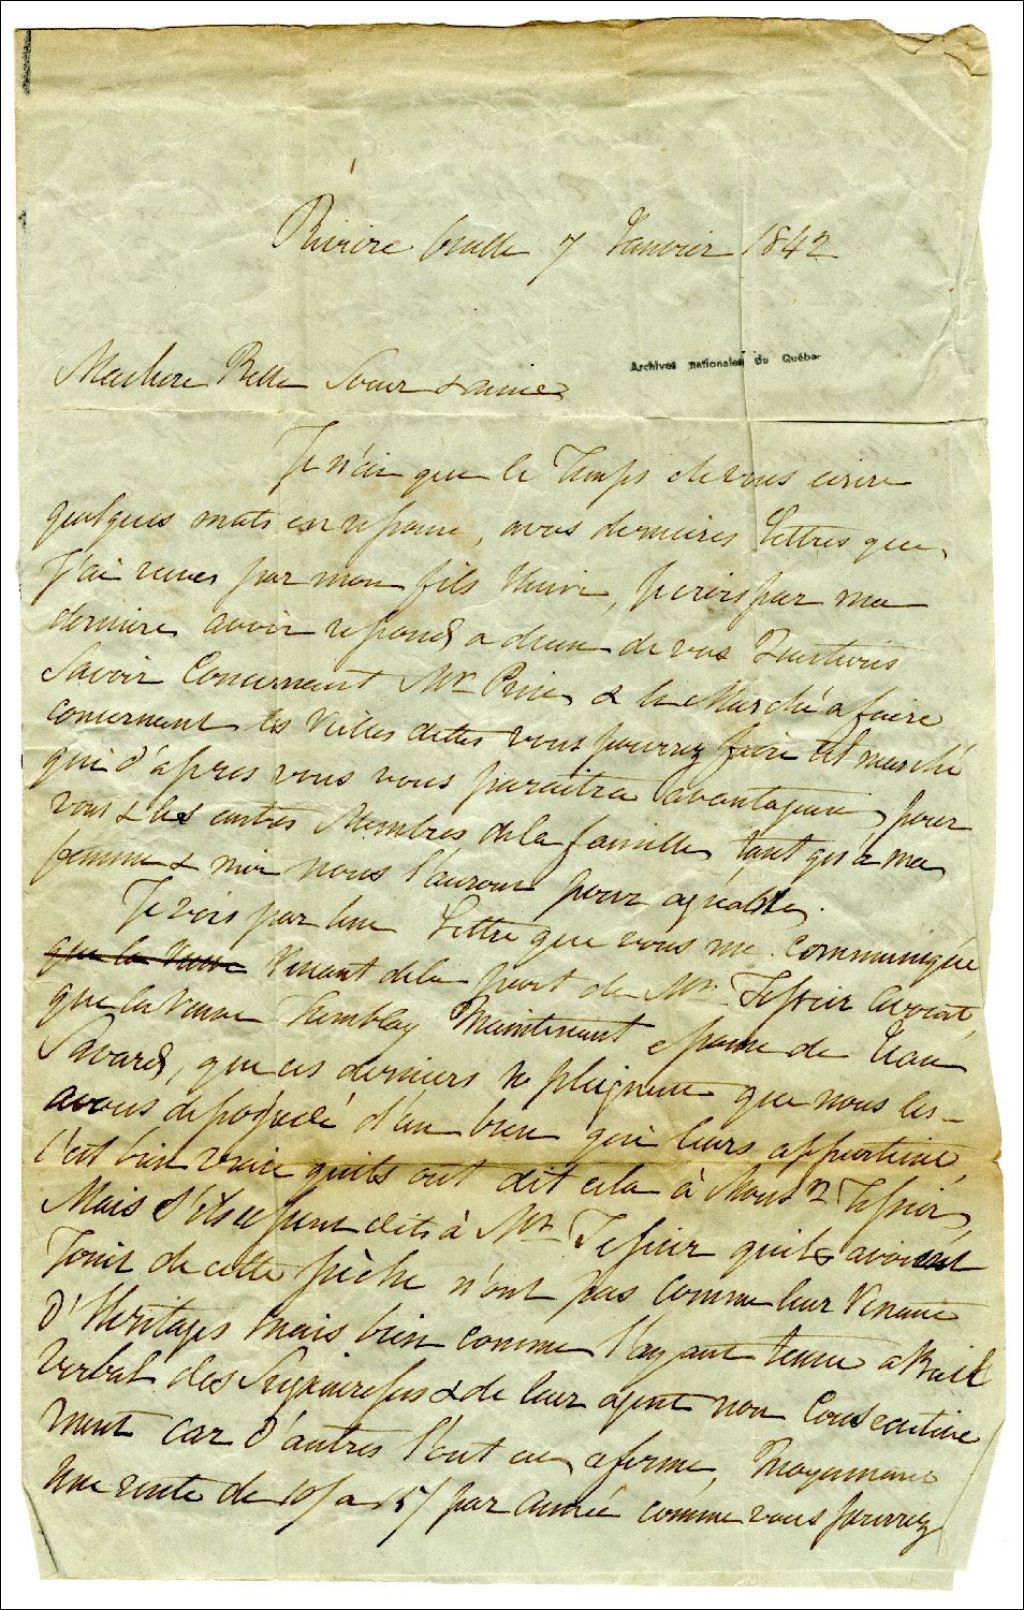 Rivière Ouelle 7 Janvier 1842
Archives nationales du Québec
Machere Belle Soeur & amie
Je n'ai que le Temps de vous ecrire
quelques mots en reponse, avos dernieres Lettres que
J'ai reçues par mon fils, Je crois par ma
derniere avoir repond a deux de vos Questions
Savoir Concernant Mr Price & le Marché a faire
concernant les Vielles dettes vous pourrez faire tel marché
qui d'apres vous vous paraitra avantageux, pour
vous & les autres Membres dela famille, tant qu'a ma
femme & moi nous l'aurons pour agréable.
Je vois par une Lettre que vous me communiquée
que la Veuve Venant dela part de Mr Tessier avocat,
que la Veuve Tremblay Maintenant epouse de
Savard, que ces derniers se pleignent que nous les
avons depossedé d'un bien qui leurs appartient,
C'est bien vrai quils ont dit cela à Monsr Tessier,
Mais S'ils ont dit à Mr Tessier quils avoient
Jouit de cette pèche n'ont pas comme leur Venant
d'Heritages mais bien comme l'ayant tenue a Bail
verbal des Seigneuresses & de leur agent non Consecutive
ment car d'autres l'ont eu, aferme, Moyennant
une rente de 10/ a 15/ par année comme vous pourrez